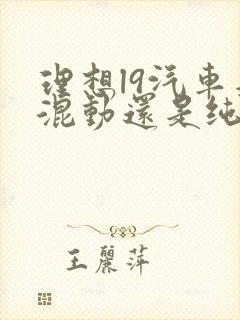 理想l9汽車
混動還是純
王麗萍